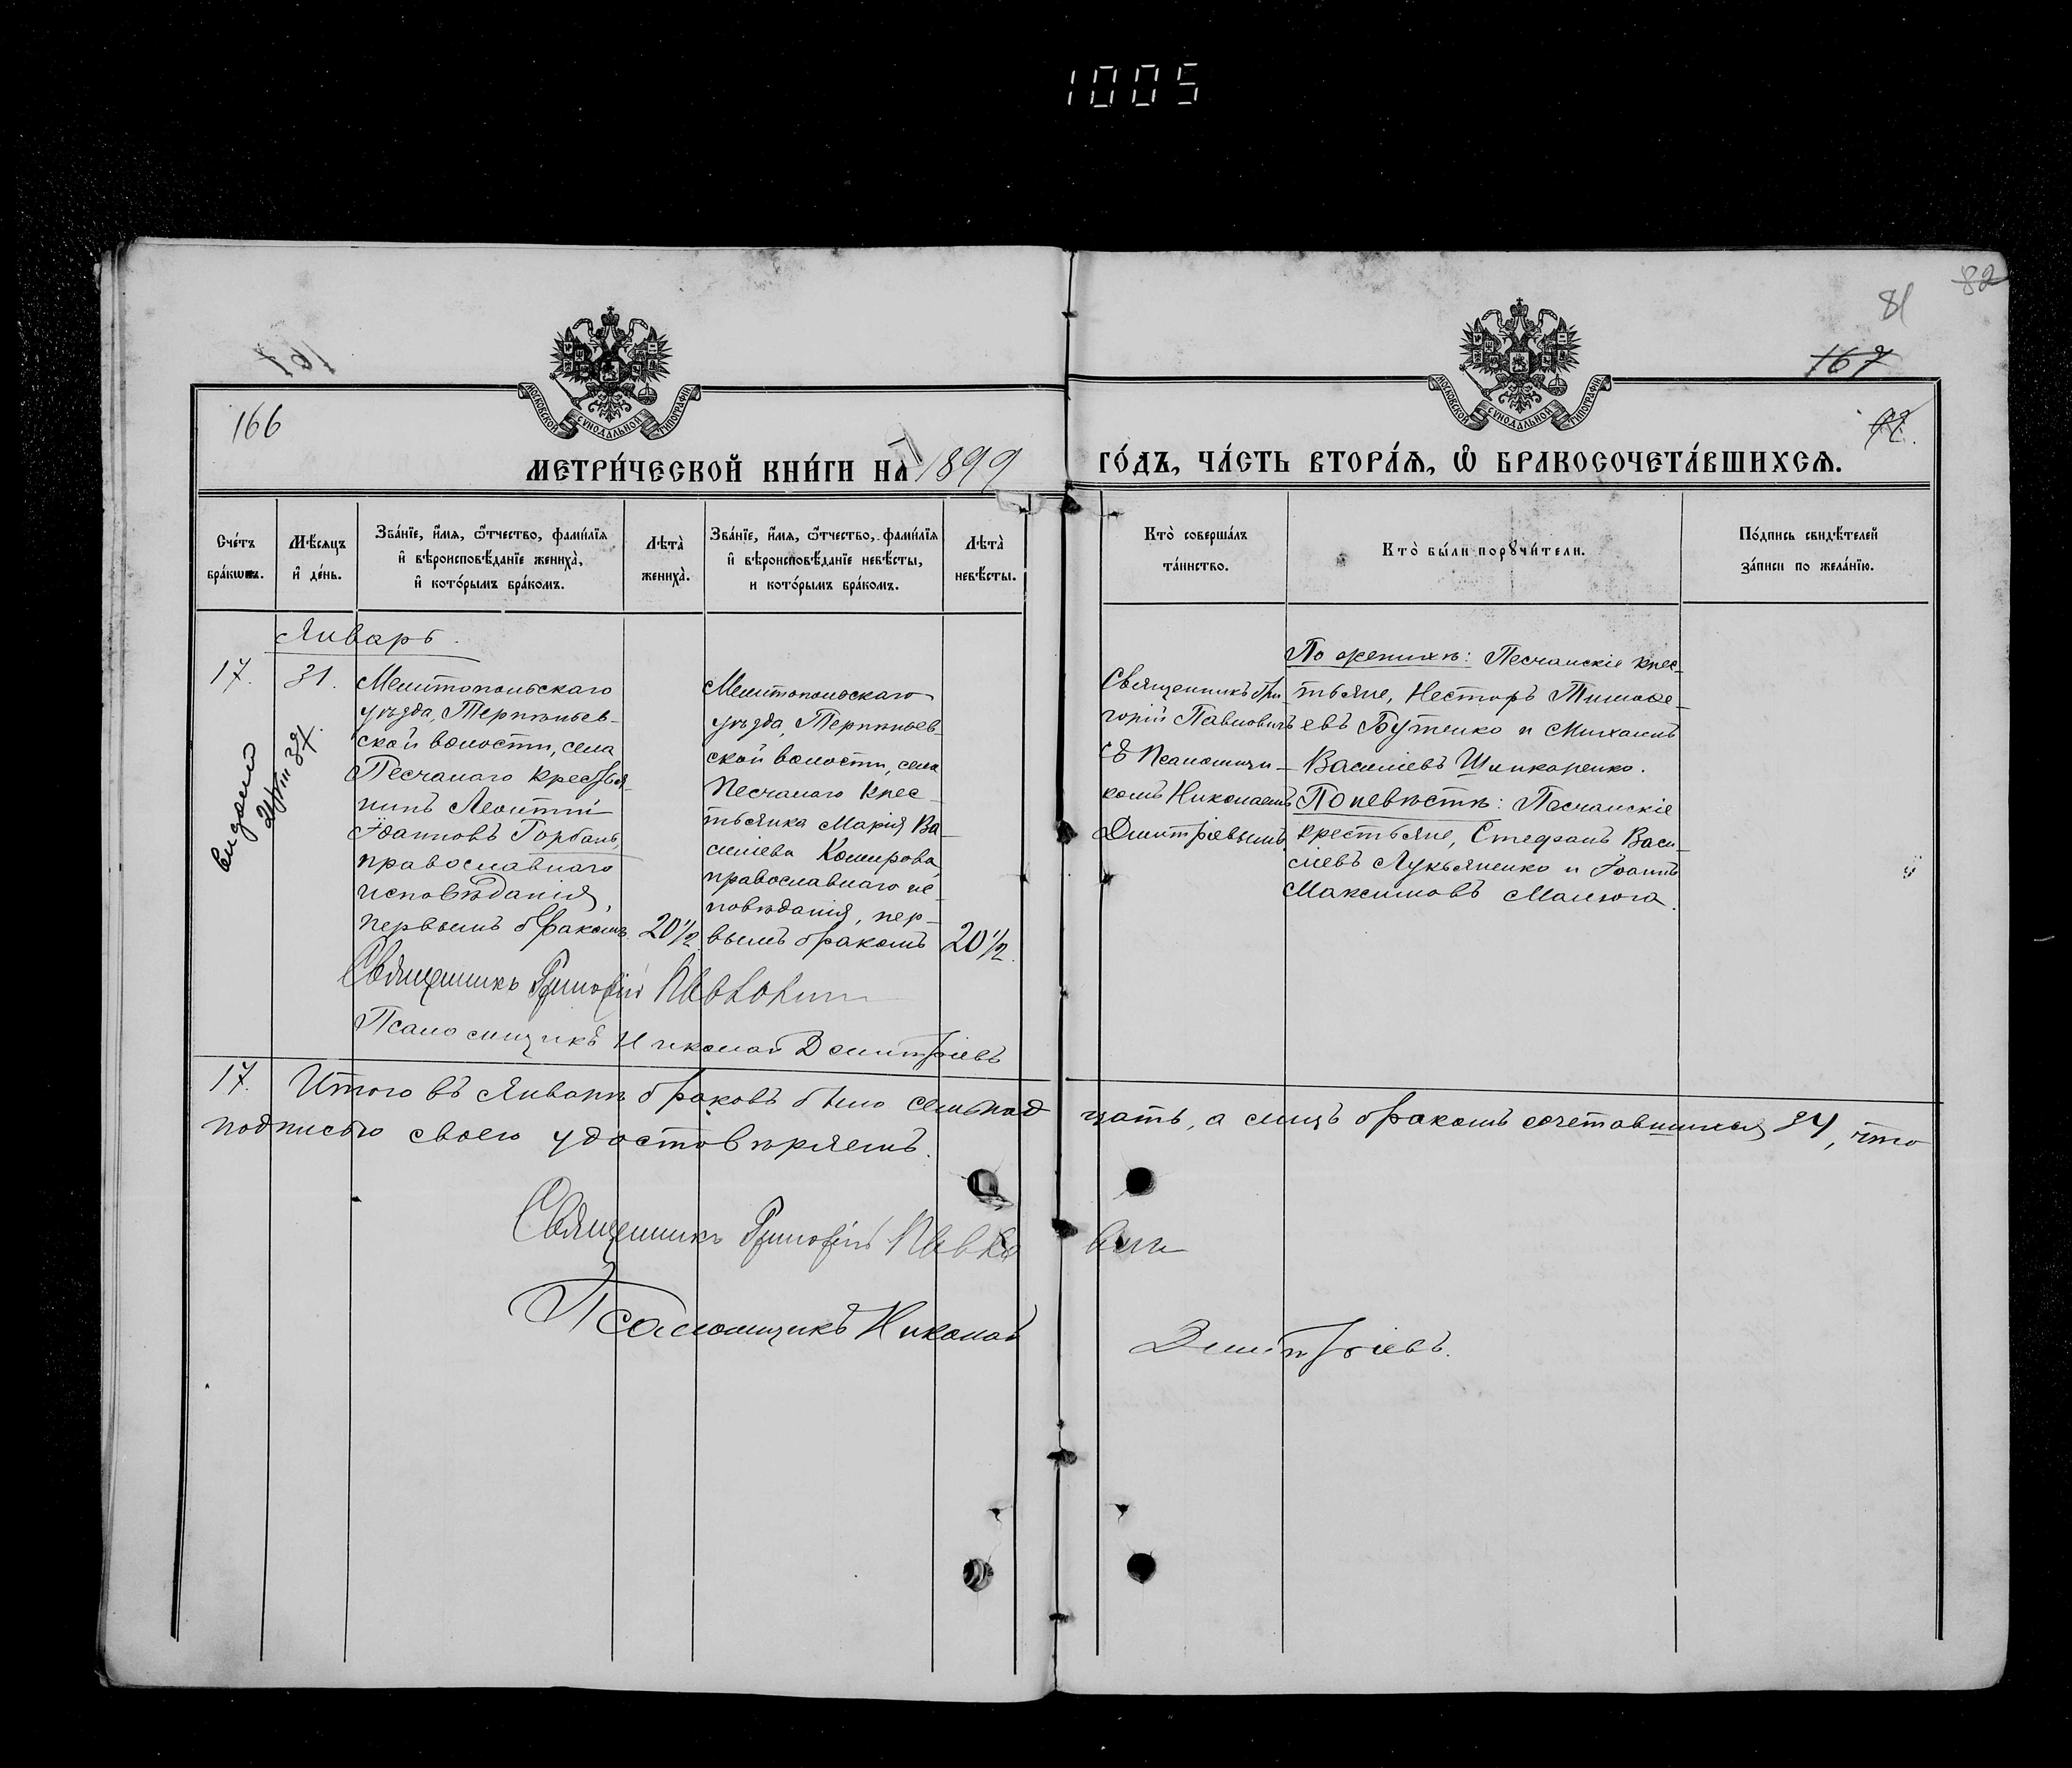 1005
82
81
167
166
МОСКОВСКОЙ СѴНОДАЛЬНОЙ ТИПОГРАФІИ
МОСКОВСКОЙ СѴНОДАЛЬНОЙ ТИПОГРАФІИ
МЕТРИ́ЧЕСКОЙ КНИ́ГИ НА 1899 ГО́ДЪ, ЧА́СТЬ ВТОРА́Ѧ, Ѽ БРАКОСОЧЕТА́ВШИХСѦ.
Сче́тъ бра́кѡвъ.
Мѣ́сяцъ и҆ де́нь.
Зва́нїе, и҆́мѧ, ѻ҆́тчество, фами́лїѧ
и҆ вѣроисповѣ́данїе жениха̀,
и҆ кото́рымъ бра́комъ.
Лѣта̀ жениха̀.
Зва́нїе, и҆́мѧ, ѻ҆́тчество, фами́лїѧ
и҆ вѣроисповѣ́данїе невѣ́сты,
и кото́рымъ бра́комъ.
Лѣта̀ невѣ́сты.
Кто̀ соверша́лъ
та́инство.
Кто̀ бы́ли порꙋчи́тели.
По́дпись свидѣ́телей
за́писи по жела́нїю.
Январь.
17.
31.
Мелитопольскаго
уѣзда, Терпѣньев-
ской волости, села
Песчанаго крестья-
нинъ Леонтий
Іоанновъ Горбань,
православнаго
исповѣданія,
первымъ бракомъ.
20 1/2.
Мелитопольскаго
уѣзда, Терпѣньев-
ской волости, села
Песчанаго крес-
тьянка Марія Ва-
силіева Комирова
православнаго ис-
повѣданія, пер-
вымъ бракомъ
20 1/2.
Священникъ Гри-
горій Павловичъ
съ Псаломщи-
комъ Николаемъ
Дмитріевымъ.
По женихѣ: Песчанскіе крес-
тьяне, Несторъ Тимофе-
евъ Бутенко и Михаилъ
Василіевъ Шинкаренко.
По невѣстѣ: Песчанскіе
крестьяне, Стефанъ Васи-
ліевъ Лукьяненко и Іоаннъ
Максимовъ Малюга.
Священникъ Григорій Павлович
Псаломщикъ Николай Дмитріевъ
17. Итого въ Январѣ браковъ было семьнадцать, а лицъ бракомъ сочетавшихся 34, что
подписью своею удостовѣряемъ.
Священникъ Григорій Павлович
Псаломщикъ Николай Дмитріевъ.